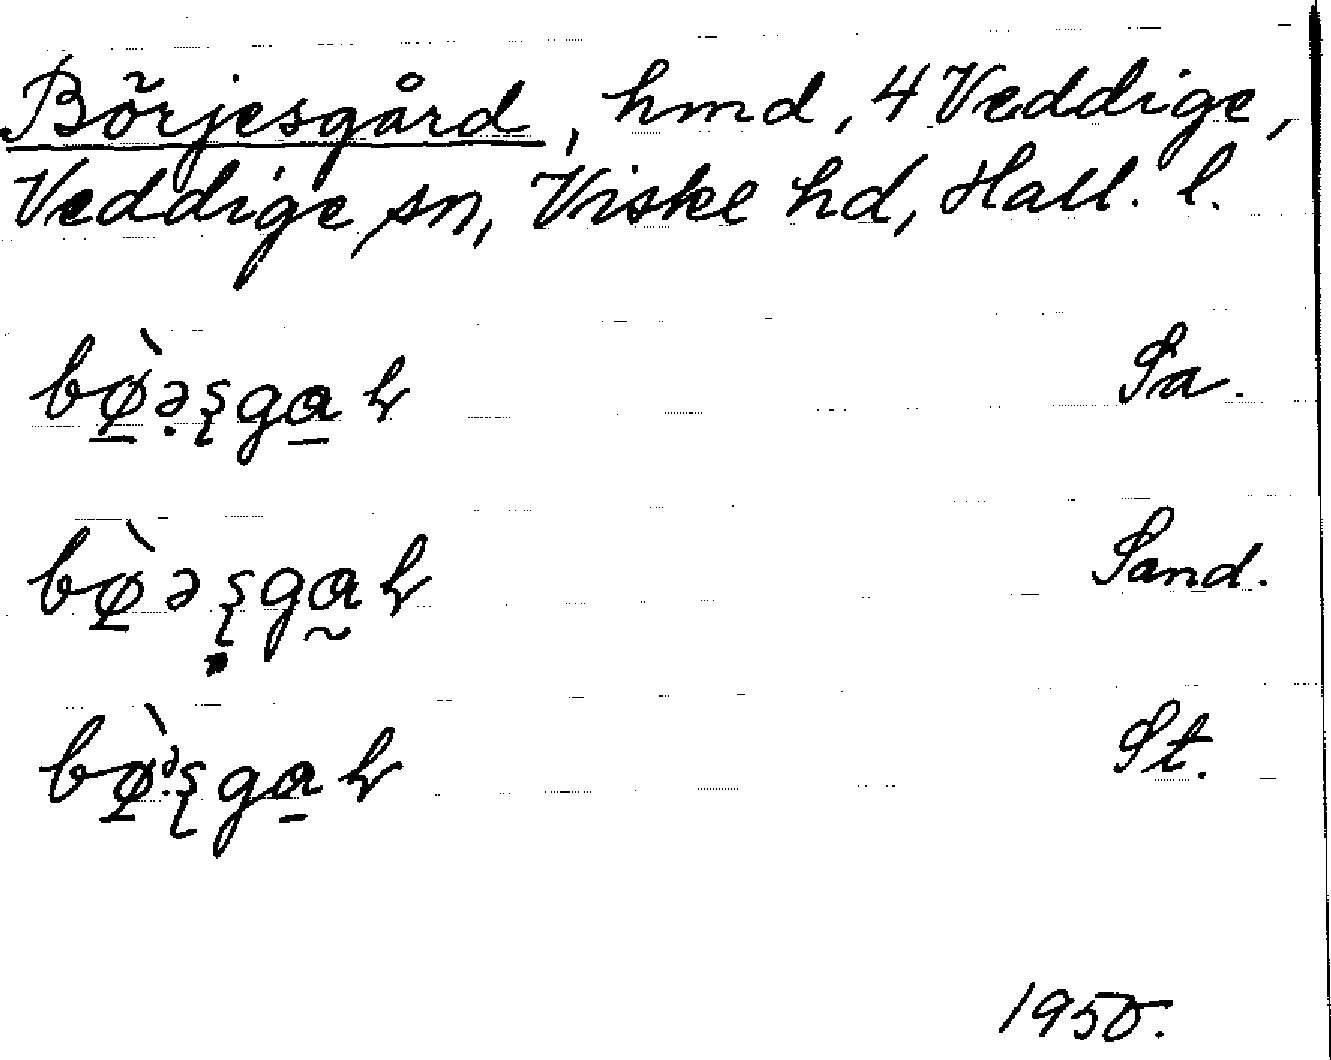 Börjesgård, hmd, 4 Veddige,
Veddige sn, Viske hd, Hall. l.
bø̲̀ə̣ʂga̲ꝛ Sa.
bø̲̀əʂ̣ga̰ꝛ Sand.
bø̲̀ᵊʂga̲ꝛ St.
1950.